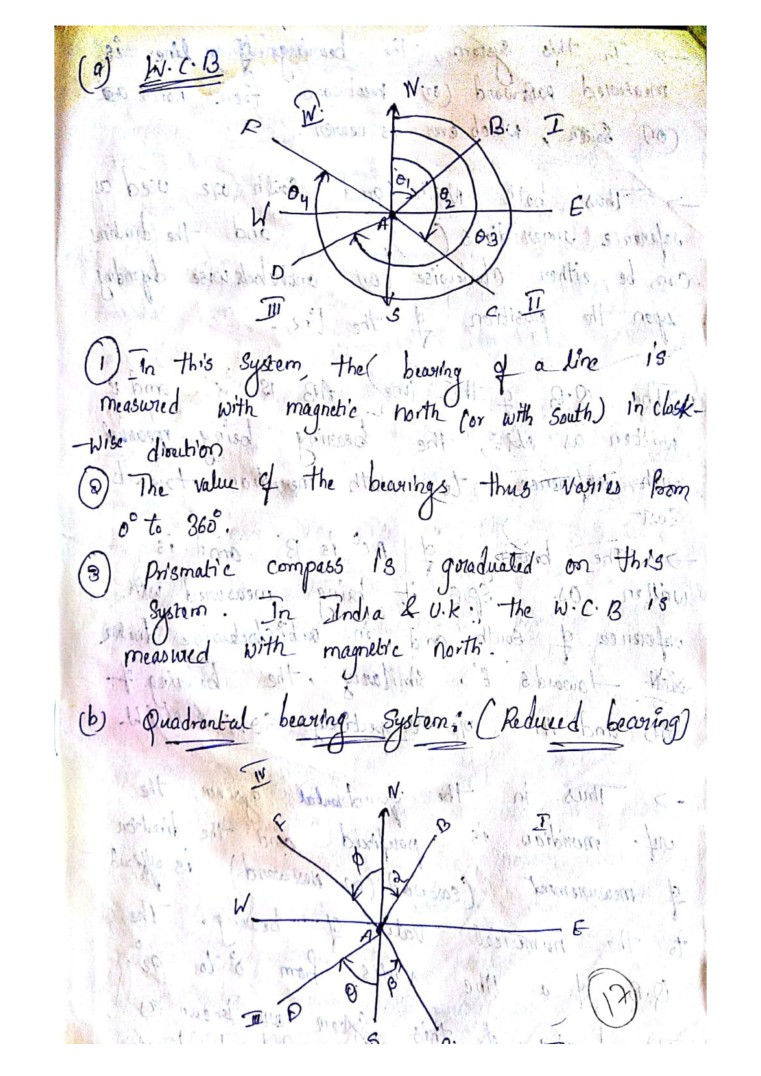 (a) W.C.B
N
IV
F
B
I
θ4
θ1
θ2
W
A
E
θ3
D
III
S
C
II
① In this System, the bearing of a line is
measured with magnetic north (or with South) in clock-
-wise direction
② The value of the bearings thus varies from
0° to 360°.
③ Prismatic compass is graduated on this
System. In India & U.K., the W.C.B is
measured with magnetic north.
(b) Quadrantal bearing System:. (Reduced bearing)
IV
N
F
B
I
φ
α
W
A
E
θ
β
III
D
S
17